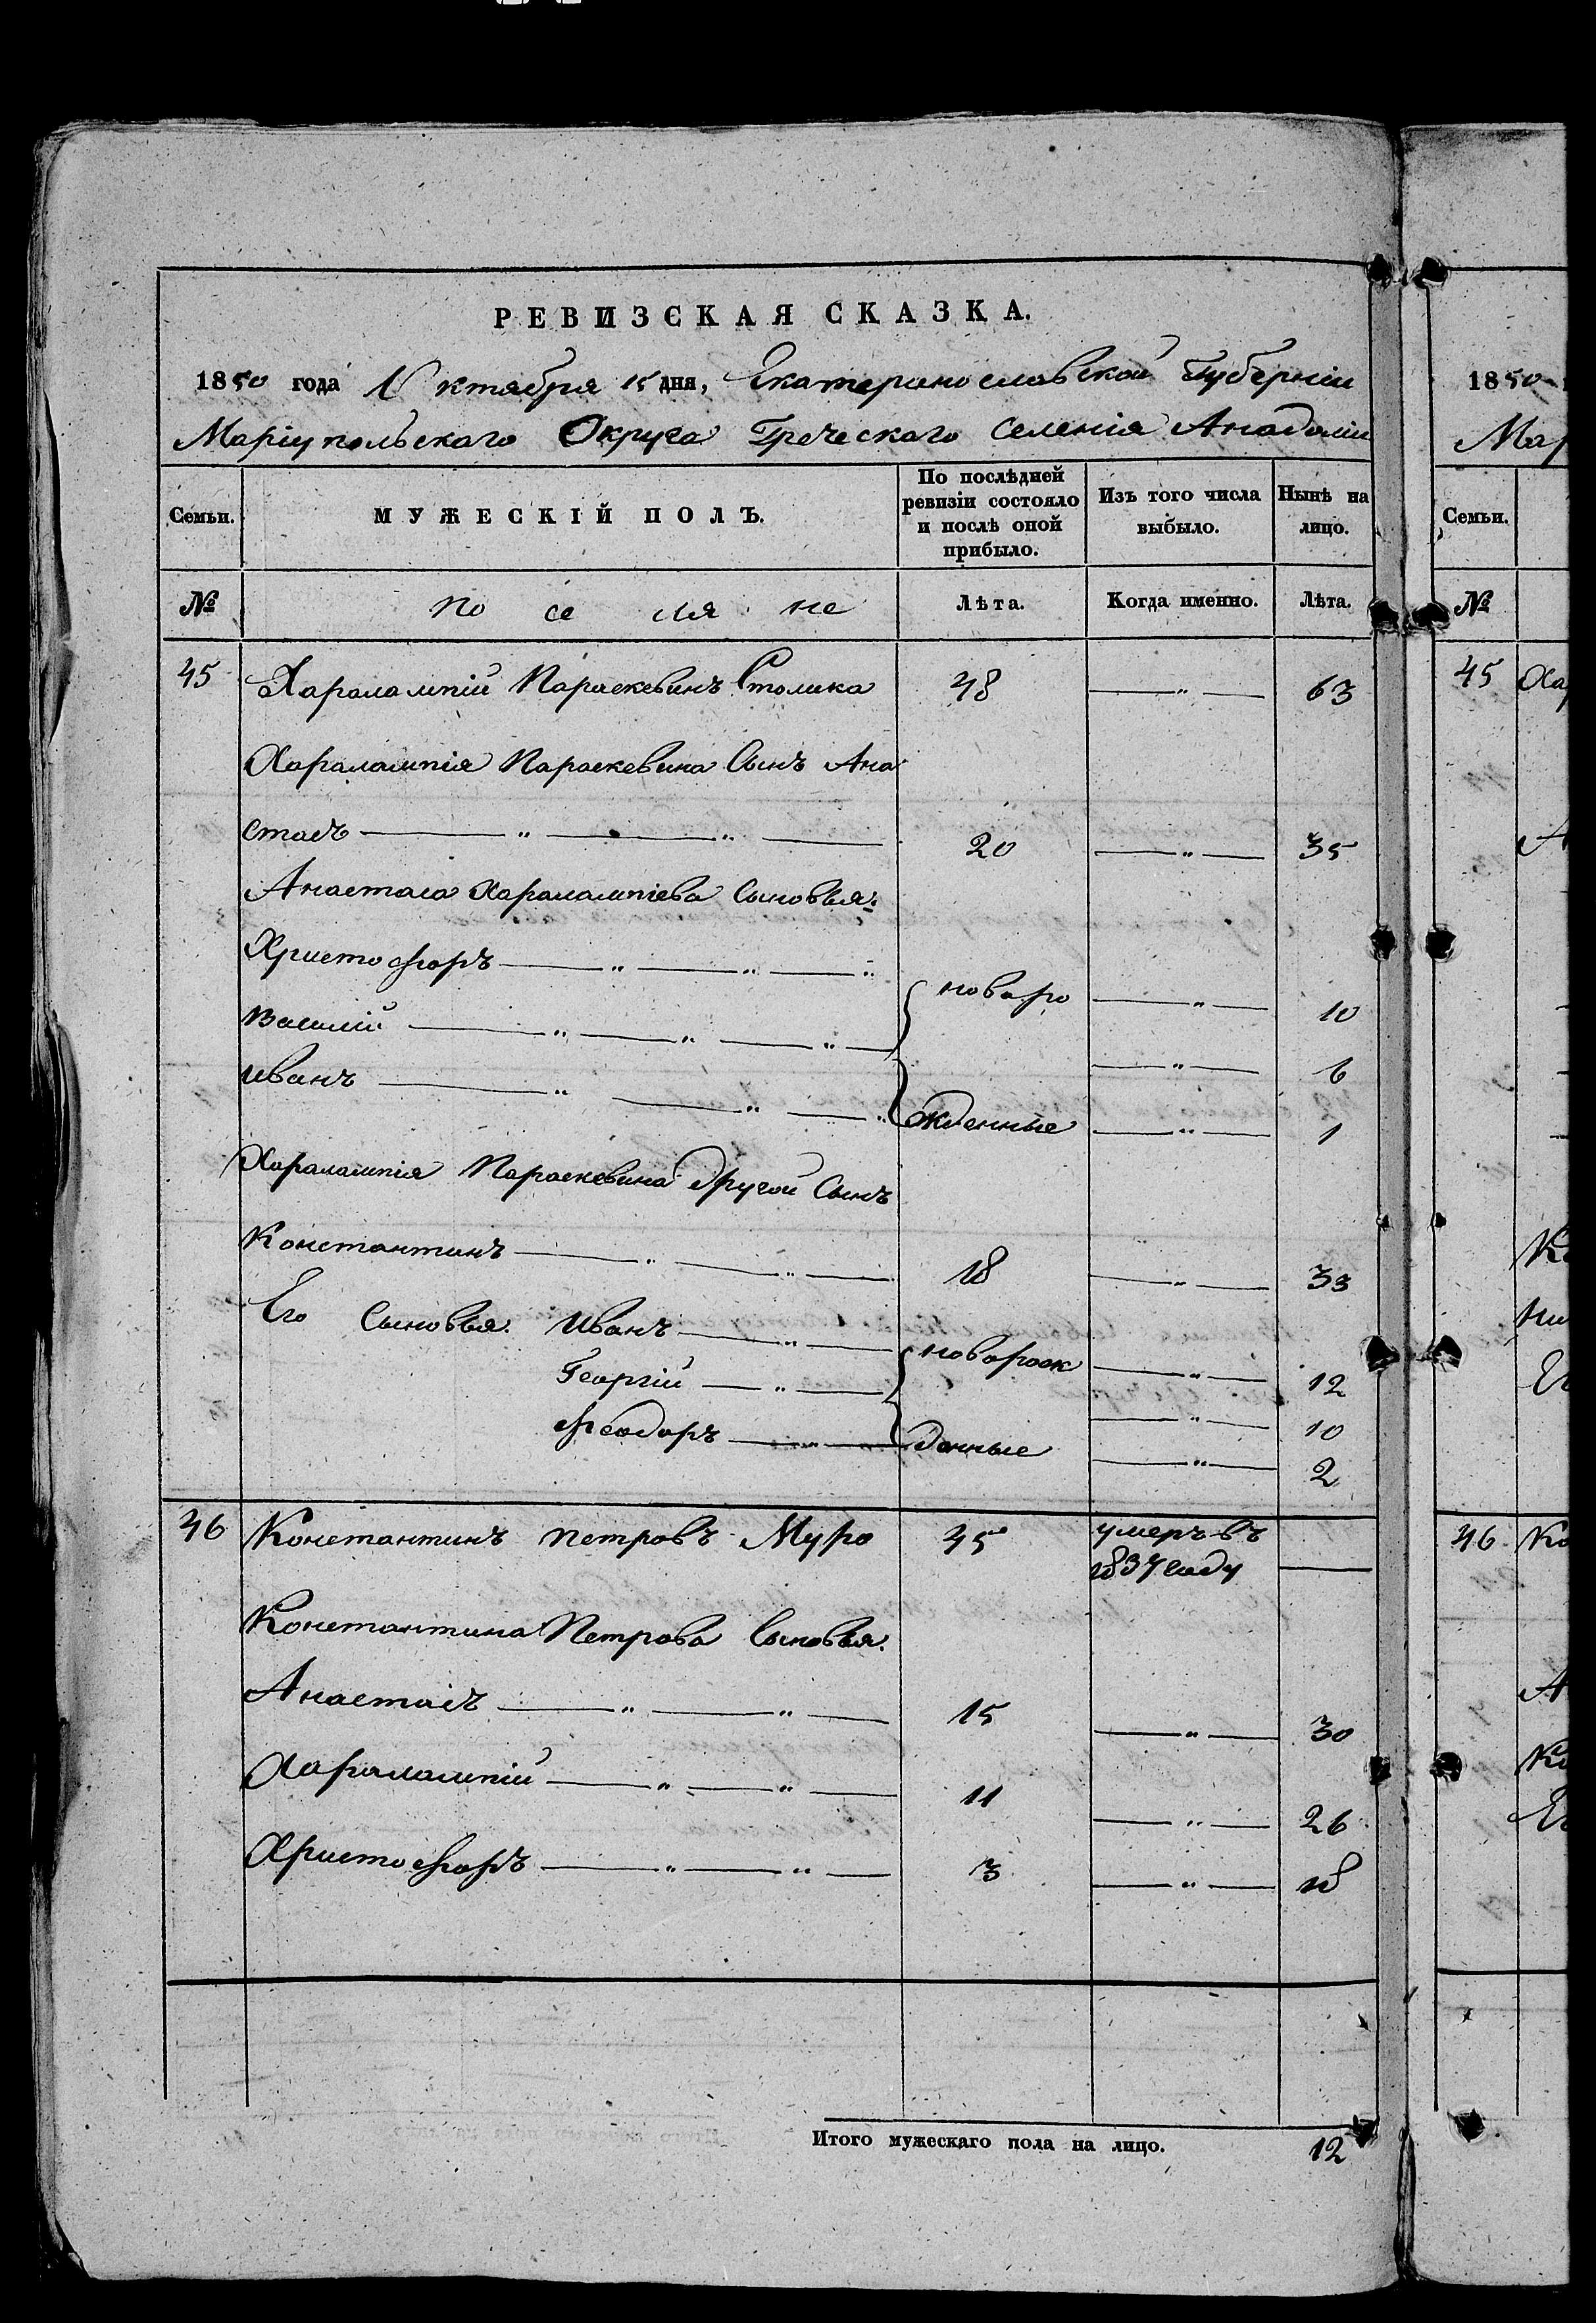 РЕВИЗСКАЯ СКАЗКА.
1850 года Октября 15 дня, Екатеринославской Губерніи
Маріупольскаго Округа Греческаго Селенія Анадоліи
Семьи.
МУЖЕСКІЙ ПОЛЪ.
По послѣдней ревизіи состояло и послѣ оной прибыло.
Изъ того числа выбыло.
Нынѣ на лицо.
№ поселяне Лѣта. Когда именно. Лѣта.
45 Харалампій Параскевинъ Столика 48 —"— 63
Харалампія Параскевина Сынъ Ана
стасъ —"—"— 20 —"— 35
Анастаса Харалампіева Сыновья:
Христофоръ —"—"—" новоро —"— 10
Василій —"—"—"— —"— 6
Иванъ —"—"—" жденные —"— 1
Харалампія Параскевина другой Сынъ
Константинъ —"—"— 18 —"— 33
Его Сыновья. Иванъ —"— новорож —"— 12
Георгій —"— —"— 10
Феодоръ —"— данные —"— 2
46 Константинъ Петровъ Муро 45 умеръ въ
1837 году —
Константина Петрова Сыновья.
Анастасъ —"—"— 15 —"— 30
Харалампій —"—"— 11 —"— 26
Христофоръ —"—"— 3 —"— 18
Итого мужескаго пола на лицо. 12
1850
Мар
Семьи.
№
45 Хар
А
Ко
Ни
Ег
46 Ко
А
Ко
Ег